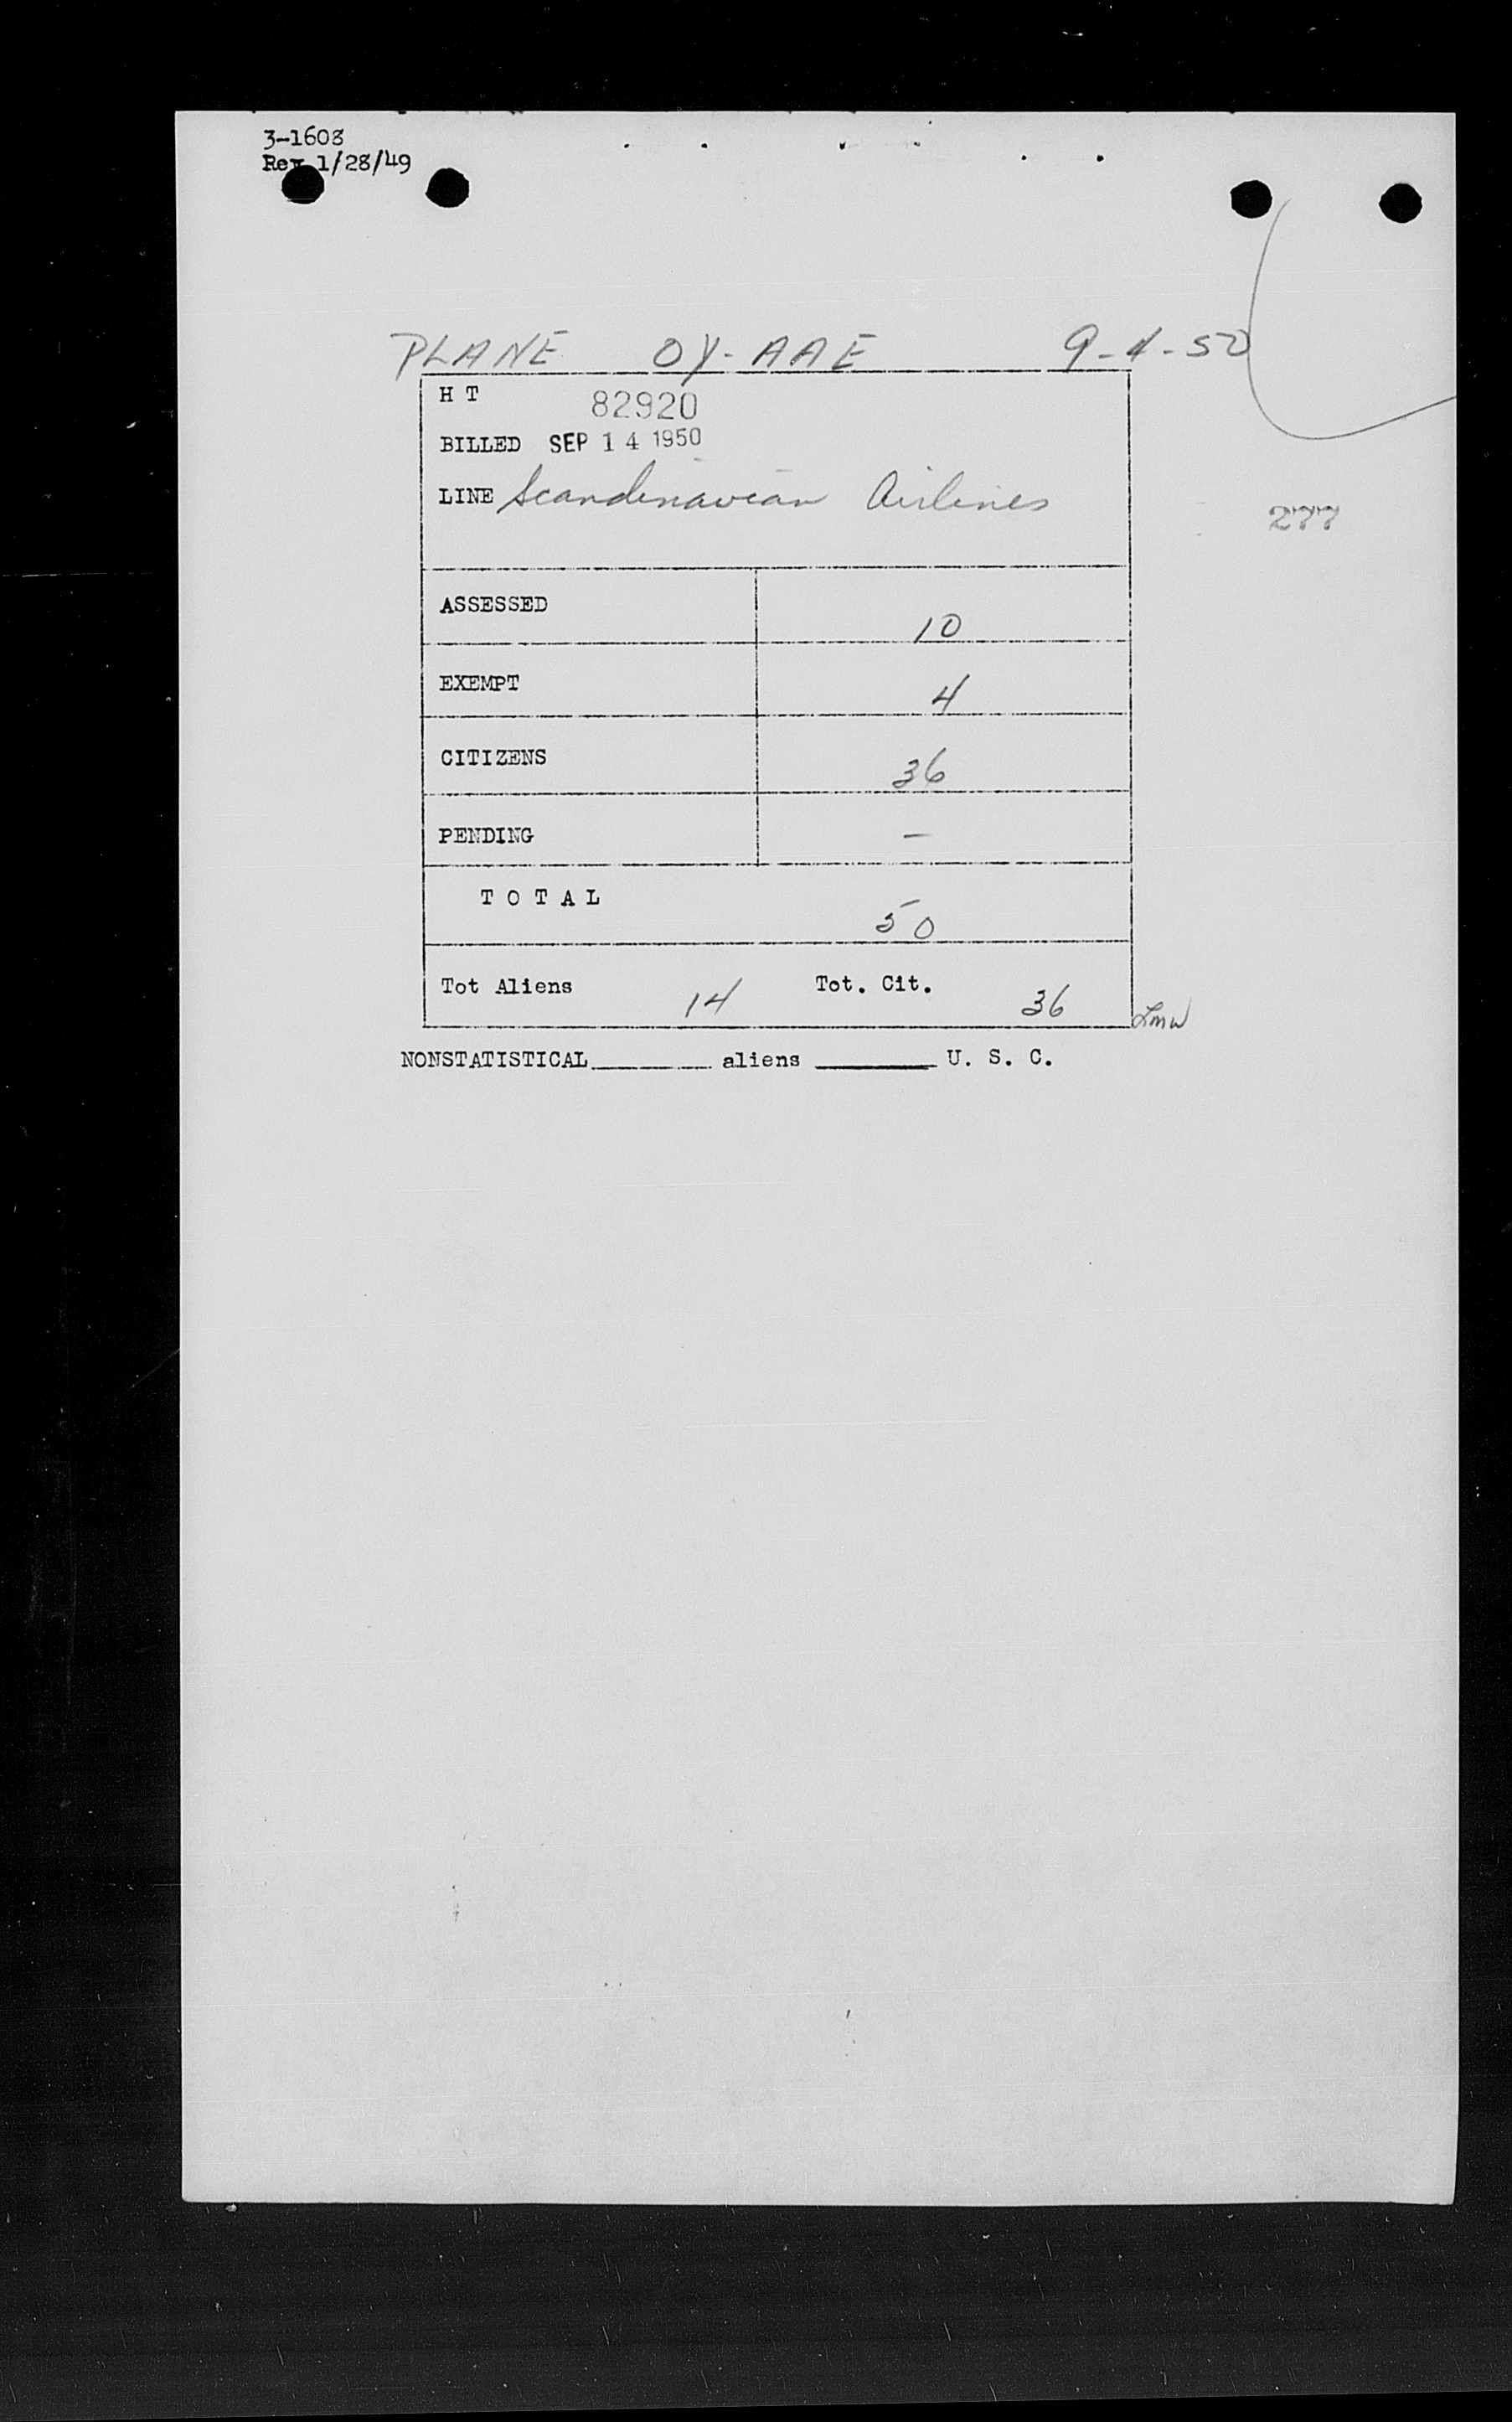 3-1608
Rev 1/28/49
PLANE OY-AAE 9-4-50
H T 82920
BILLED SEP 14 1950
LINE Scandinavian Airlines
277
ASSESSED 10
EXEMPT 4
CITIZENS 36
PENDING —
TOTAL 50
Tot Aliens 14 Tot. Cit. 36
LMW
NONSTATISTICAL______ aliens ______ U. S. C.